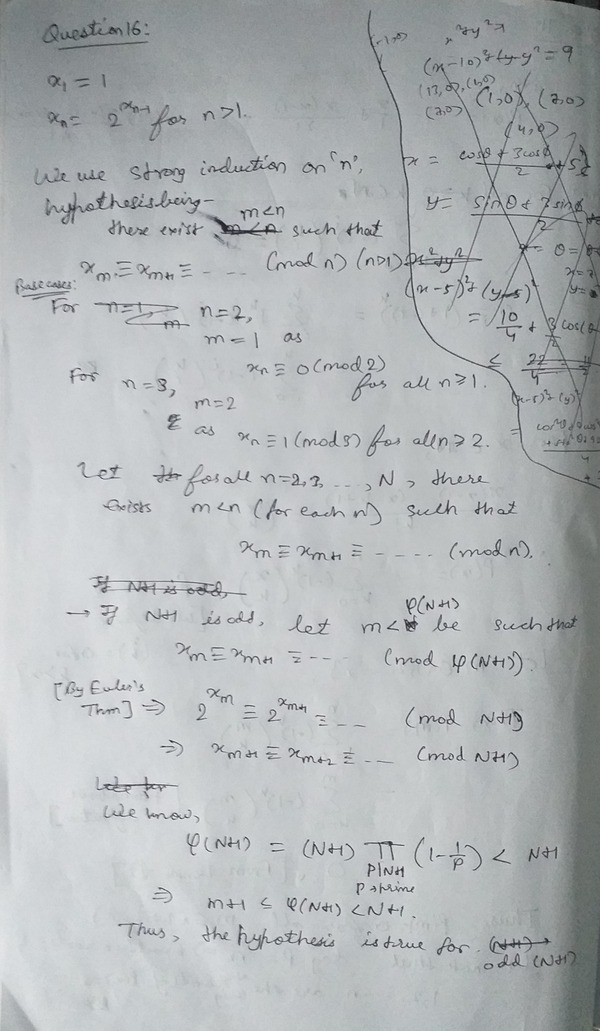 Question 16:
x₁ = 1
xₙ = 2^(xₙ₋₁) for n>1.
We use strong induction on 'n',
hypothesis being -
there exist m<n such that
xₘ ≡ xₘ₊₁ ≡ ---- (mod n) (n>1)
Base cases:
For n=2,
m = 1 as
xₙ ≡ 0 (mod 2)
for all n≥1.
For n=3,
m=2
as xₙ ≡ 1 (mod 3) for all n≥2.
Let for all n=2,3, ..., N, there
exists m<n (for each n) such that
xₘ ≡ xₘ₊₁ ≡ ---- (mod n).
If N+1 is odd,
→ If N+1 is odd, let m < φ(N+1) be such that
xₘ ≡ xₘ₊₁ ≡ --- (mod φ(N+1)).
[By Euler's
Thm] ⇒ 2^(xₘ) ≡ 2^(xₘ₊₁) ≡ --- (mod N+1)
⇒ xₘ₊₁ ≡ xₘ₊₂ ≡ --- (mod N+1)
We know,
φ(N+1) = (N+1) ∏ (1-1/p) < N+1
p|N+1
p prime
⇒ m+1 ≤ φ(N+1) < N+1.
Thus, the hypothesis is true for
odd (N+1)
(-1,0)
(x-10)²+y² = 9
(13,0),
(7,0)
(1,0), (7,0)
(4,0)
x = cosθ + 3cosϕ
2
+ 5
y = sinθ + 3sinϕ
2
(x-5)² + (y-5)²
= 10
4
+ 3
2
cos(θ
≤ 22
4